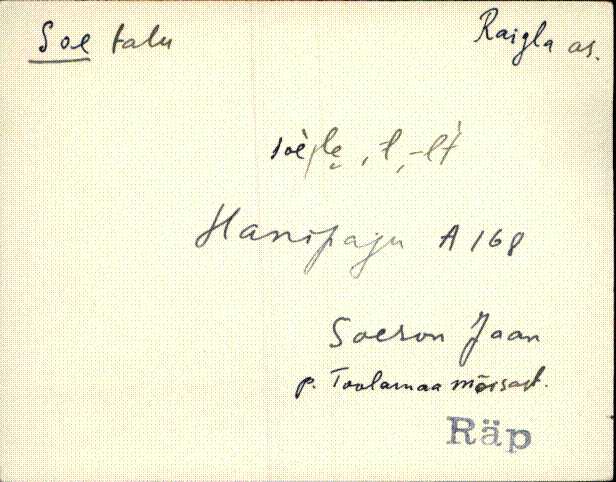 Soe talu
Raigla as.
, -l, -lt
Hanipaju A 168
Soeson Jaan
p. Toolamaa mõisast.
Räp